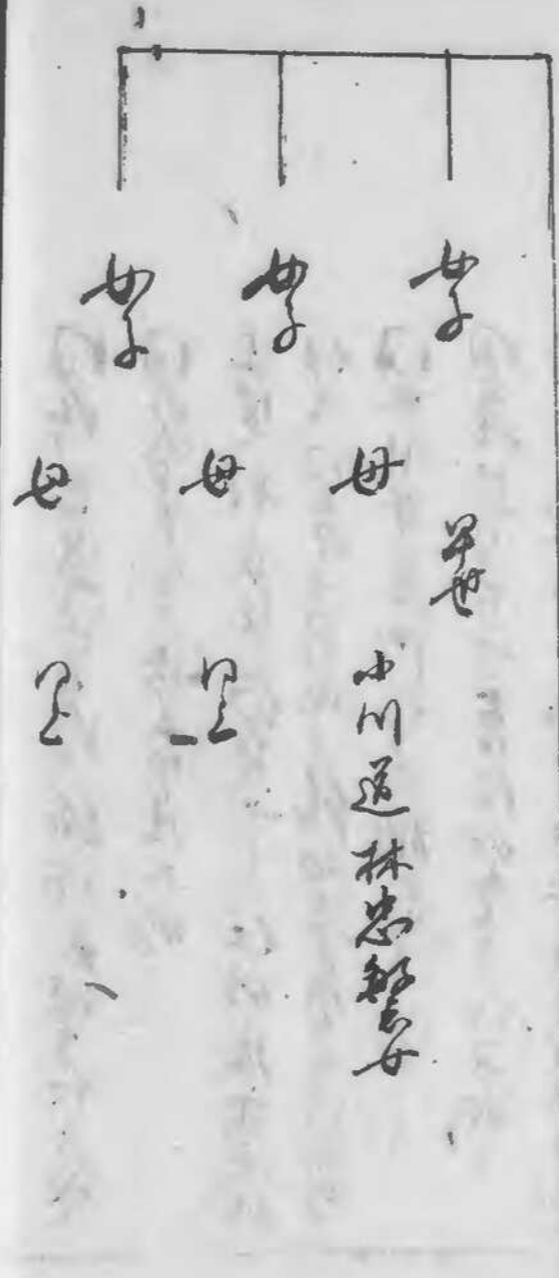 女子
早世
母 小川道林忠繁女
女子
母 同上
女子
母 同上